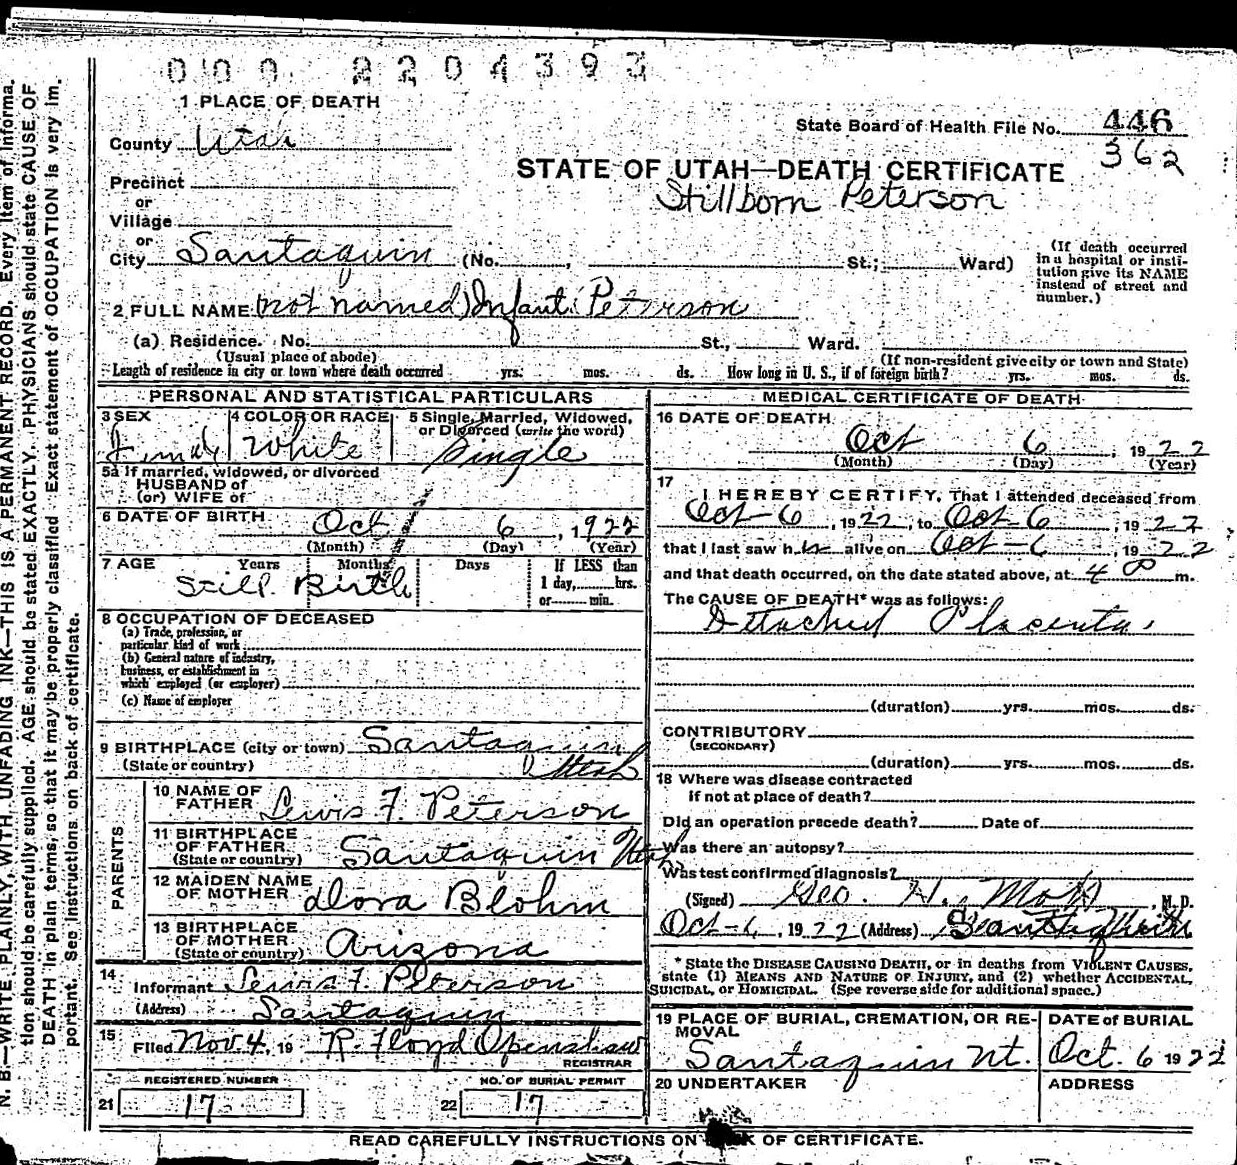 000 2204393
1 PLACE OF DEATH
County Utah
State Board of Health File No. 446
362
STATE OF UTAH—DEATH CERTIFICATE
Stillborn Peterson
Precinct
or
Village
or
City Santaquin (No. , St.; Ward)
(If death occurred
in a hospital or insti-
tution give its NAME
instead of street and
number.)
2 FULL NAME (not named) Infant Peterson
(a) Residence. No. St., Ward.
(Usual place of abode) (If non-resident give city or town and State)
Length of residence in city or town where death occurred yrs. mos. ds. How long in U. S., if of foreign birth? yrs. mos. ds.
PERSONAL AND STATISTICAL PARTICULARS
3 SEX 4 COLOR OR RACE 5 Single, Married, Widowed,
or Divorced (write the word)
Female White Single
5a If married, widowed, or divorced
HUSBAND of
(or) WIFE of
6 DATE OF BIRTH
Oct 6, 1922
(Month) (Day) (Year)
7 AGE Years Months Days If LESS than
1 day, hrs.
or min.
Still Birth
8 OCCUPATION OF DECEASED
(a) Trade, profession, or
particular kind of work
(b) General nature of industry,
business, or establishment in
which employed (or employer)
(c) Name of employer
9 BIRTHPLACE (city or town) Santaquin
(State or country) Utah
PARENTS
10 NAME OF
FATHER Lewis F. Peterson
11 BIRTHPLACE
OF FATHER
(State or country) Santaquin Utah
12 MAIDEN NAME
OF MOTHER Dora Blohm
13 BIRTHPLACE
OF MOTHER
(State or country) Arizona
14
Informant Lewis F. Peterson
(Address) Santaquin
15
Filed Nov. 4, 19 R. Floyd Openshaw
REGISTRAR
REGISTERED NUMBER NO. OF BURIAL PERMIT
21 17 22 17
MEDICAL CERTIFICATE OF DEATH
16 DATE OF DEATH
Oct 6, 1922
(Month) (Day) (Year)
17
I HEREBY CERTIFY, That I attended deceased from
Oct-6, 1922, to Oct-6, 1922
that I last saw h alive on Oct-6, 1922
and that death occurred, on the date stated above, at 4 00 m.
The CAUSE OF DEATH* was as follows:
Detached Placenta
(duration) yrs. mos. ds.
CONTRIBUTORY
(SECONDARY)
(duration) yrs. mos. ds.
18 Where was disease contracted
if not at place of death?
Did an operation precede death? Date of
Was there an autopsy?
Was test confirmed diagnosis?
(Signed) Geo. H. , M.D.
Oct-6, 1922 (Address)
* State the DISEASE CAUSING DEATH, or in deaths from VIOLENT CAUSES,
state (1) MEANS AND NATURE OF INJURY, and (2) whether ACCIDENTAL,
SUICIDAL, or HOMICIDAL. (See reverse side for additional space.)
19 PLACE OF BURIAL, CREMATION, OR RE-
MOVAL
Santaquin Ut.
DATE of BURIAL
Oct. 6 1922
20 UNDERTAKER ADDRESS
READ CAREFULLY INSTRUCTIONS ON OF CERTIFICATE.
N. B.—WRITE PLAINLY, WITH UNFADING INK—THIS IS A PERMANENT RECORD. Every item of informa-
tion should be carefully supplied. AGE should be stated EXACTLY. PHYSICIANS should state CAUSE OF
DEATH in plain terms, so that it may be properly classified. Exact statement of OCCUPATION is very im-
portant. See instructions on back of certificate.